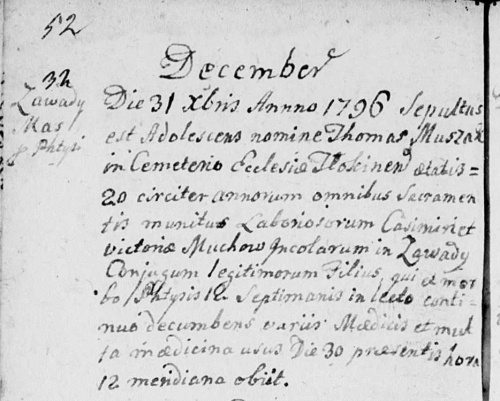 52
December
32
Zawady
Mas
Phtysi
Die 31 Xbris Annno 1796 Sepultus
est Adolescens nomine Thomas Muszak
in Cemeterio Ecclesiæ Tłokinen ætatis=
20 circiter annorum omnibus Sacramen
tis munitus Laboriosorum Casimiri et
Victoriæ Muchow Incolarum in Zawady
Conjugum legitimorum Filius, qui ex mor
bo Phtysis 12 Septimanis in lecto conti
nuo decumbens variis Mædicis et mul
ta mædicina usus Die 30 præsentis hora
12 meridiana obiit.